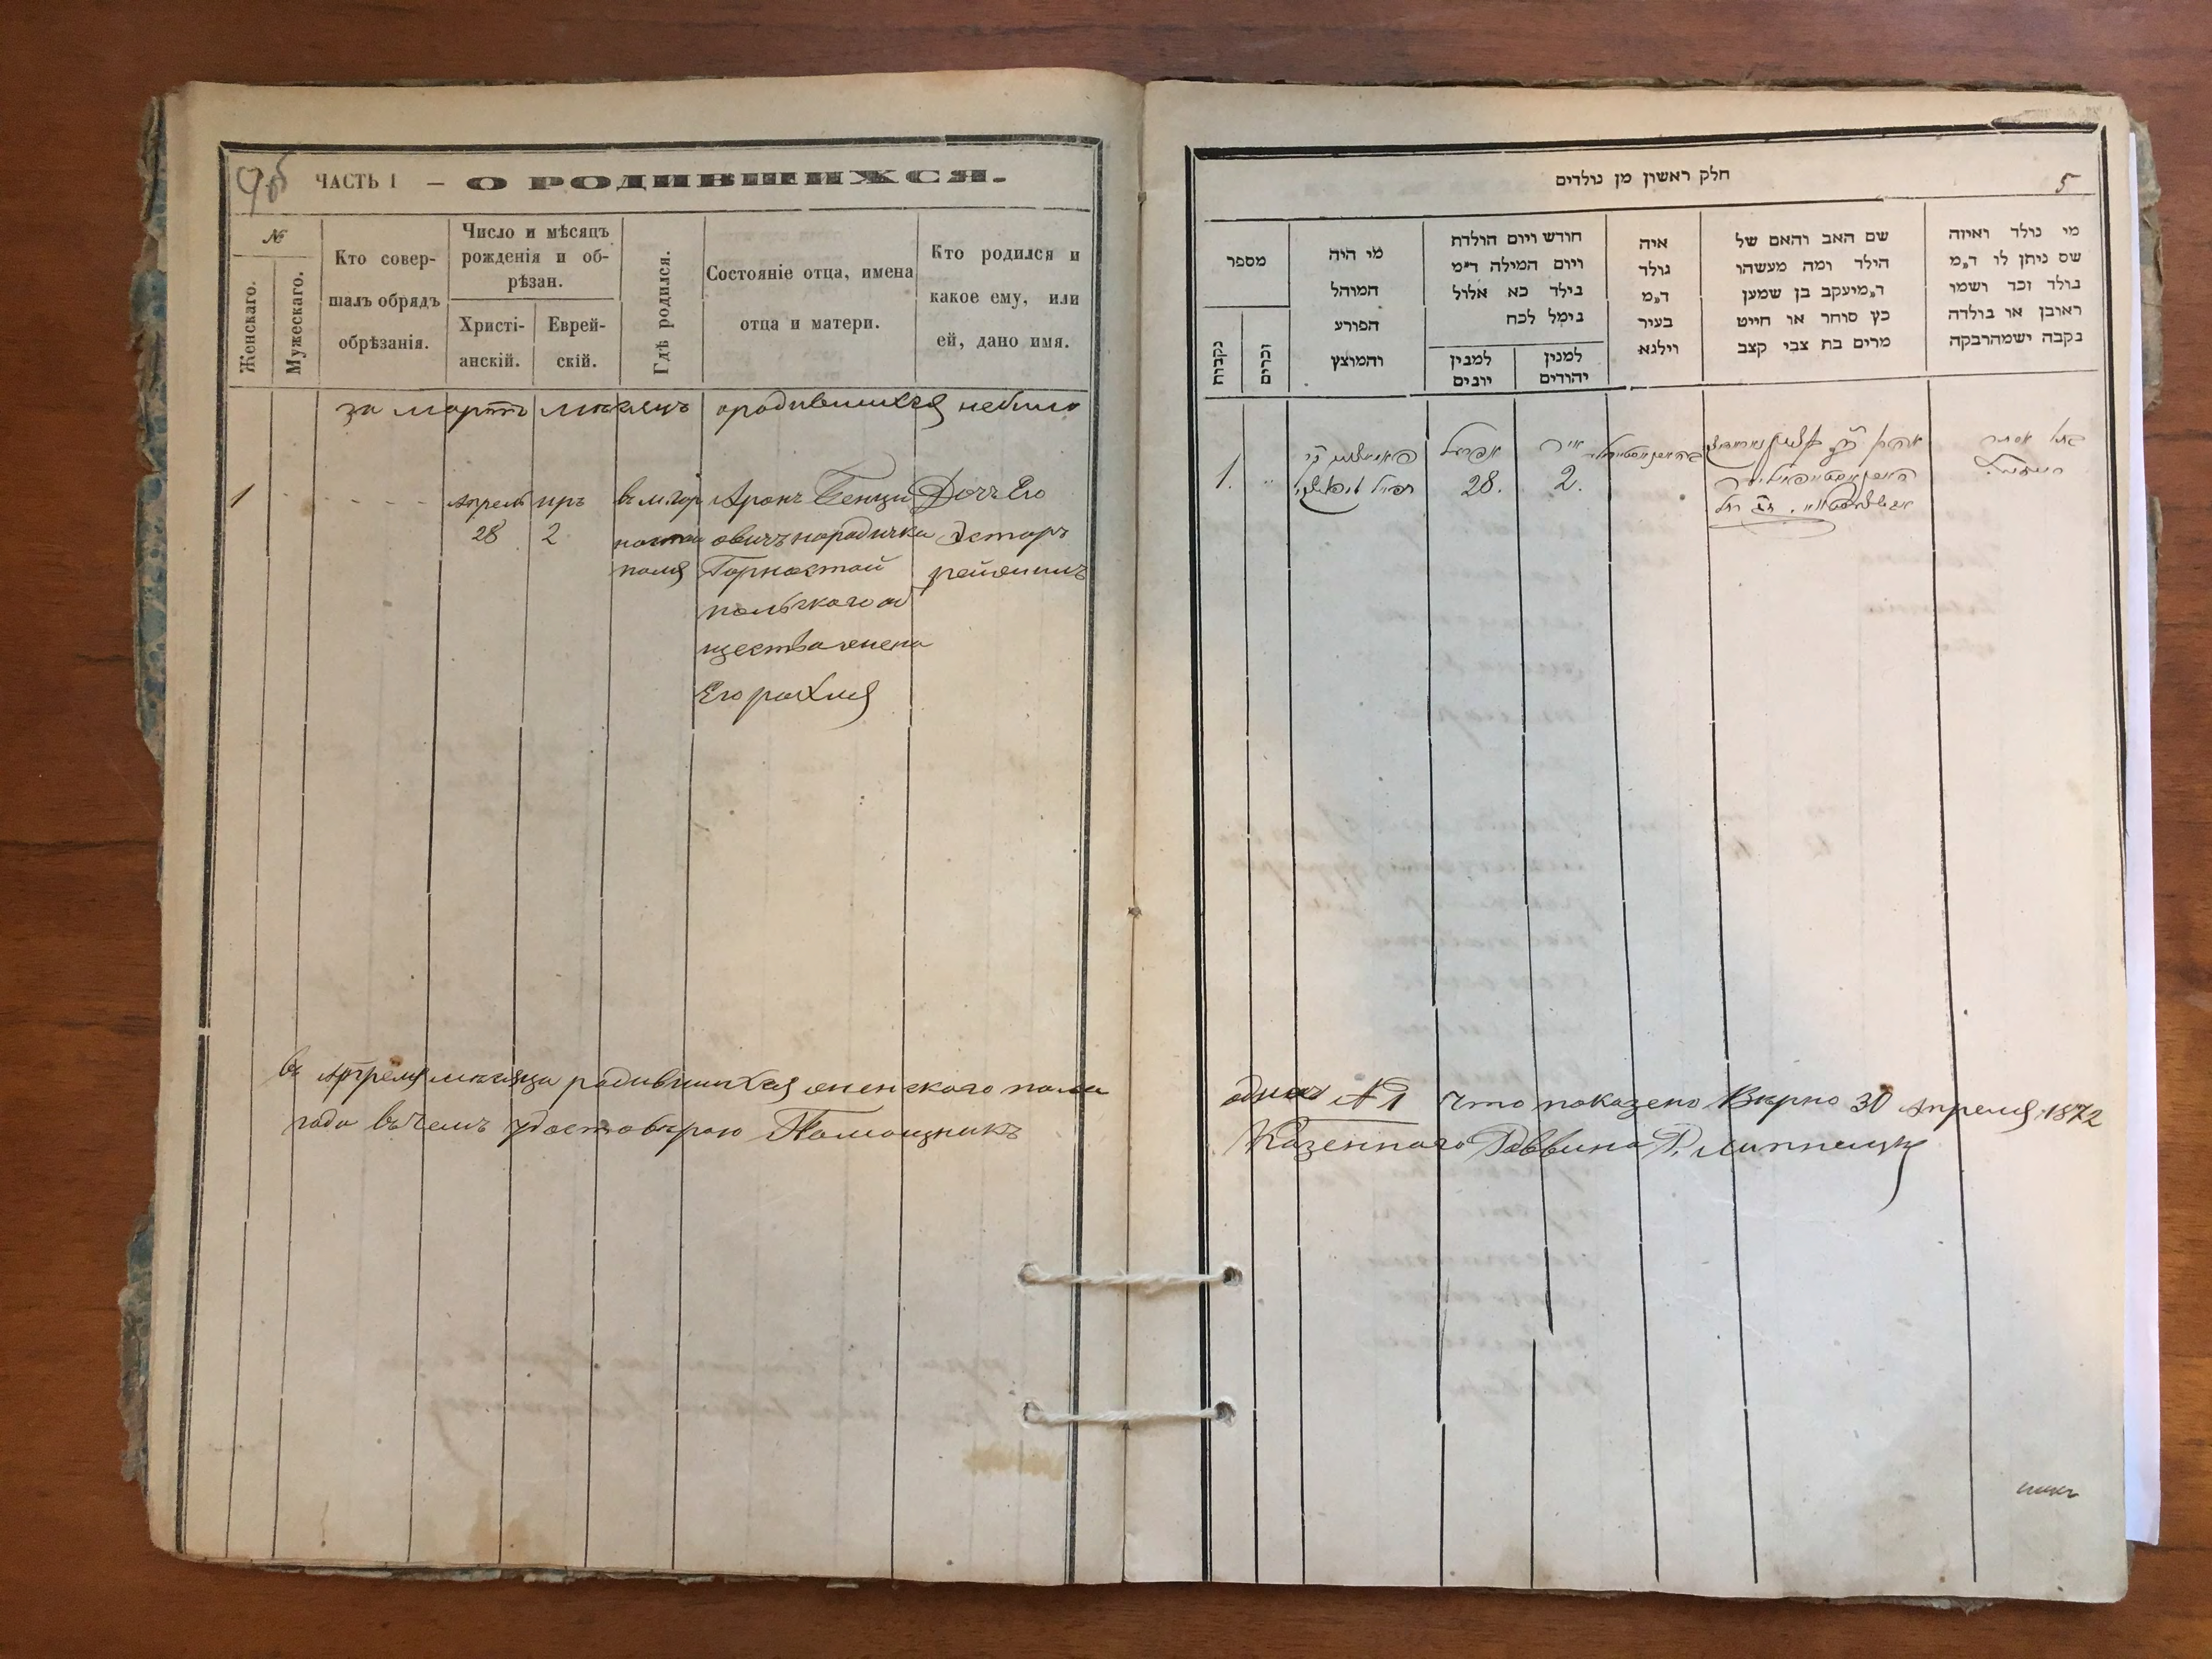 ЧАСТЬ I — О РОДИВШИХСЯ.
№
Женскаго.
Мужескаго.
Кто совер-
шалъ обрядъ
обрѣзанія.
Число и мѣсяцъ
рожденія и об-
рѣзан.
Христі-
анскій.
Еврей-
скій.
Гдѣ родился.
Состояніе отца, имена
отца и матери.
Кто родился и
какое ему, или
ей, дано имя.
за мартъ месяцъородившихся небыло
1
Апрель
28
иръ
2
въ м. гор
ностай
поля
Аронъ Бенци
овичъ народичка
Горностай
польского об
щества жена
Его рахля
Дочь Его
Эстеръ
въ Апреля месяца родившихся женского пола
года въ чемъ удостоверяю Помощникъ
חלק ראשון מן נולדים
5
מספר
נקבות
זכרים
מי היה
המוהל
הפורע
והמוצץ
חודש ויום הולדת
ויום המילה ד״מ
בילד כא אלול
נימל לכח
למנין
יונים
למנין
יהודים
איה
נולד
ד״מ
בעיר
וילנא
שם האב והאם של
הילד ומה מעשהו
ד״מ יעקב בן שמען
כץ סוחר או חייט
מרים בת צבי קצב
מי נולד ואיזה
שם ניתן לו ד״מ
נולד זכר ושמו
ראובן או נולדה
נקבה ישמה רבקה
1.
אפריל
28.
אייר
2.
בתו אסתר
одна № 1 что показено Верно 30 Апреля 1872
Казенного Раввина